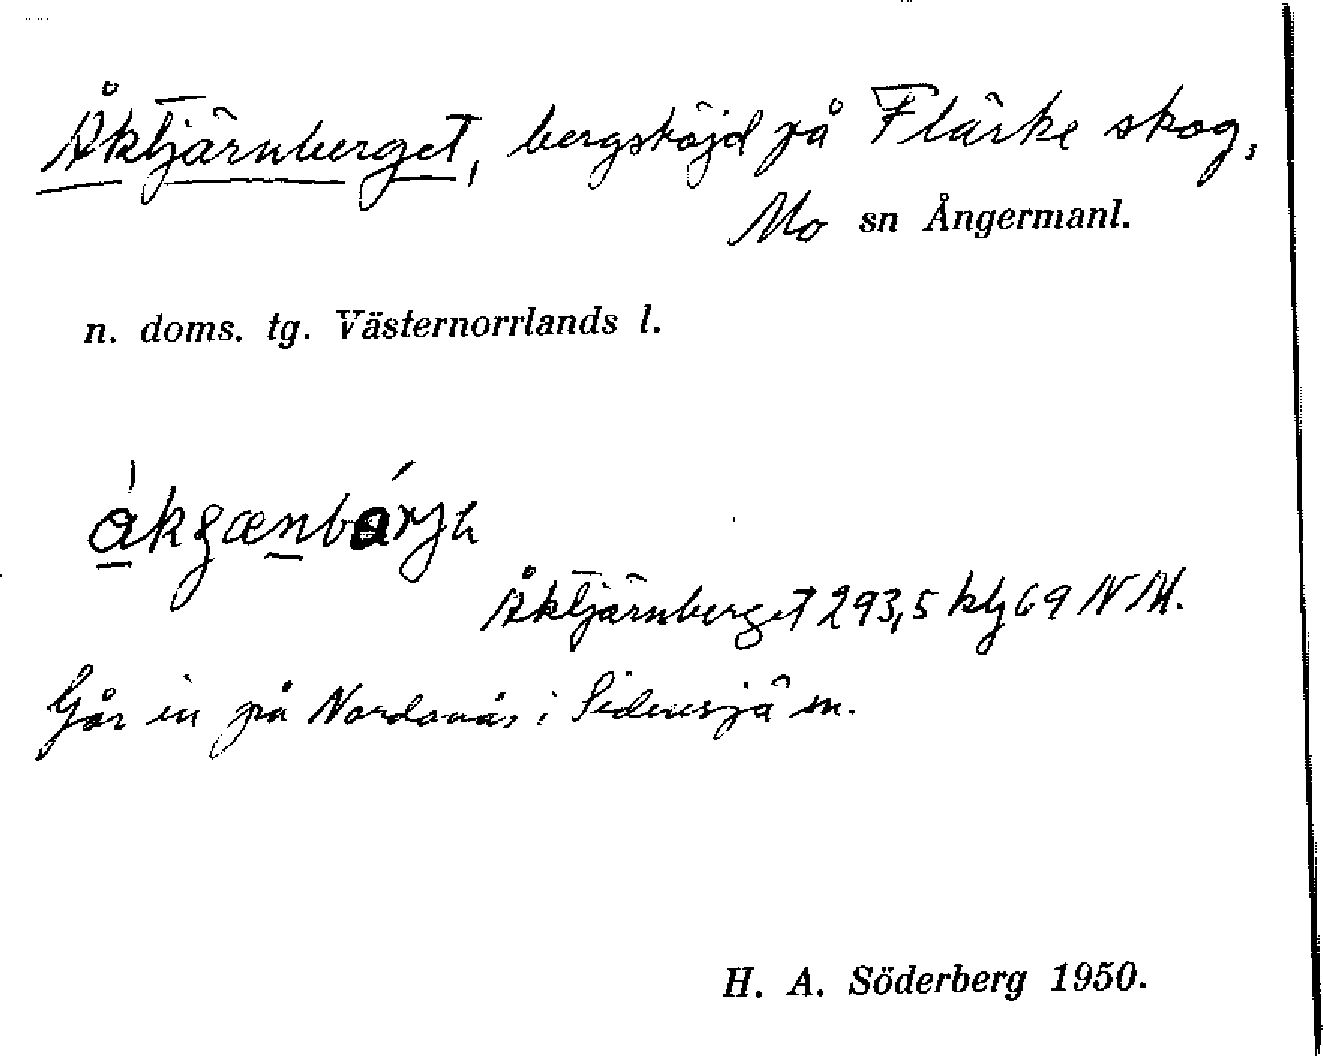 Åktjärnberget, bergshöjd på Flärke skog,
Mo sn Ångermanl.
n. doms. tg. Västernorrlands l.
Åktjärnberget 293,5 kbl 69 N M.
Går in på Nordanås i Sidensjö sn.
H. A. Söderberg 1950.